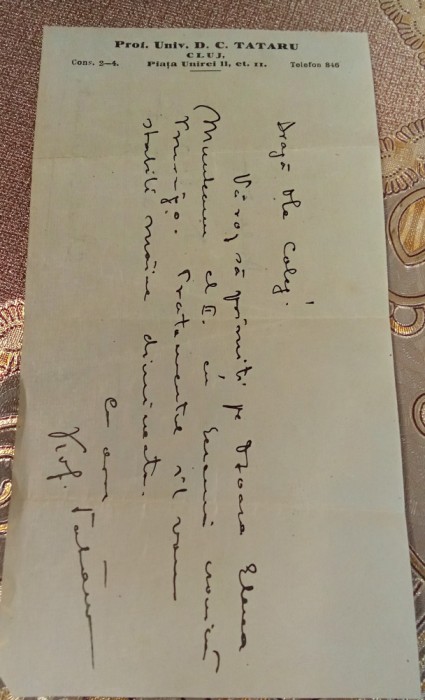 Prof. Univ. D. C. TATARU
CLUJ,
Cons. 2-4. Piața Unirei 11, et. II. Telefon 846
Dragă Dle Coleg!
Vă rog să primiți pe Dșoara Elena
Munteanu cl II. cu Eczemă cronică
Tratamentul îl vom
stabili mâine dimineața.
Prof. Tătaru